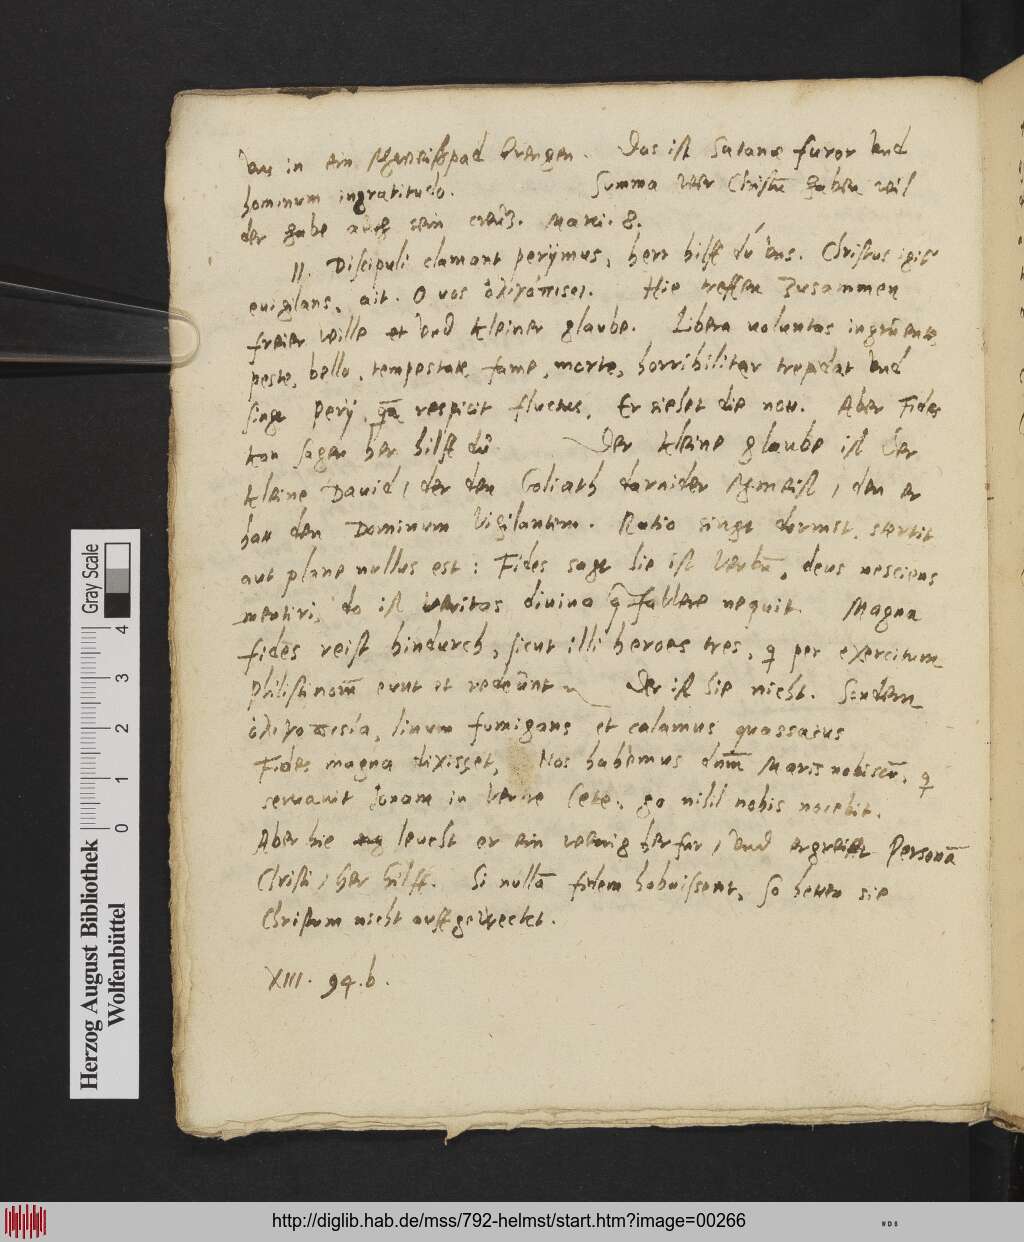 uns in ein Schweissbad brengen. Das ist Satanae furor vnd
hominum ingratitudo. Summa wer Christū haben wil
der habe auch sein creutz. Marci. 8.
II. Discipuli clamant perijmus, herr hilff du uns. Christus igitur
euigilans, ait. O vos ὀλιγόπιστοι. Hie treffen Zusammen
freier wille et vnd kleiner glaube. Libera voluntas ingruente
peste, bello, tempestate, fame, morte, horribiliter trepidat vnd
singt perij, qa respicit fluctus, Er siehet die nott. Aber Fides
kan sagen her hilff du Der kleine glaube ist der
kleine Dauid, der den Goliath darnider schmeist, den er
hatt den Dominum Vigilantem. Ratio singt dormit, stertit
aut plane nullus est: Fides sagt hie ist Verbū, deus nesciens
mentiri, do ist veritas diuina q fallere nequit. Magna
fides reist hindurch, sicut illi heroes tres, q per exercitum
philistinorū eunt et redeunt Der ist hie nicht. Sondern
ὀλιγοπιστία, linum fumigans et calamus quassatus
Fides magna dixisset, Nos habemus dnm Maris nobiscū, q
seruauit Jonam in ventre Cete. go nihil nobis nocebit.
Aber hie leucht er ein wenig herfur, vnd ergreifft Personā
Christi, her hilff. Si nullā fidem habuissent, so hetten sie
Christum nicht auffgeweckt.
XIII. 94.b.
Herzog August Bibliothek
Wolfenbüttel
0 1 2 3 4
Gray Scale
http://diglib.hab.de/mss/792-helmst/start.htm?image=00266